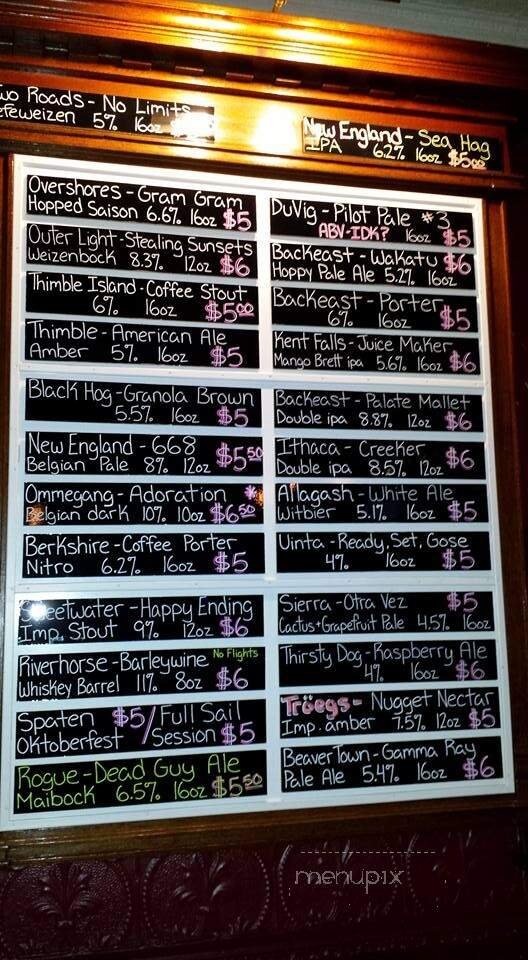 Two Roads - No Limits
Hefeweizen 5% 16oz
New England - Sea Hag
IPA 6.2% 16oz $5.00
Overshores - Gram Gram
Hopped Saison 6.6% 16oz $5
Outer Light - Stealing Sunsets
Weizenbock 8.3% 12oz $6
Thimble Island - Coffee Stout
6% 16oz $5.00
Thimble - American Ale
Amber 5% 16oz $5
Black Hog - Granola Brown
5.5% 16oz $5
New England - 668
Belgian Pale 8% 12oz $5.50
Ommegang - Adoration *
Belgian dark 10% 10oz $6.50
Berkshire - Coffee Porter
Nitro 6.2% 16oz $5
Sweetwater - Happy Ending
Imp. Stout 9% 12oz $6
Riverhorse - Barleywine No Flights
Whiskey Barrel 11% 8oz $6
Spaten $5 / Full Sail
Oktoberfest / Session $5
Rogue - Dead Guy Ale
Maibock 6.5% 16oz $5.50
DuVig - Pilot Pale #3
ABV-IDK? 16oz $5
Backeast - Wakatu $6
Hoppy Pale Ale 5.2% 16oz
Backeast - Porter
6% 16oz $5
Kent Falls - Juice Maker
Mango Brett ipa 5.6% 16oz $6
Backeast - Palate Mallet
Double ipa 8.8% 12oz $6
Ithaca - Creeker
Double ipa 8.5% 12oz $6
Allagash - White Ale
Witbier 5.1% 16oz $5
Uinta - Ready, Set, Gose
4% 16oz $5
Sierra - Otra Vez $5
Cactus + Grapefruit Pale 4.5% 16oz
Thirsty Dog - Raspberry Ale
4% 16oz $6
Tröegs - Nugget Nectar
Imp. amber 7.5% 12oz $5
Beaver Town - Gamma Ray
Pale Ale 5.4% 16oz $6
menupix